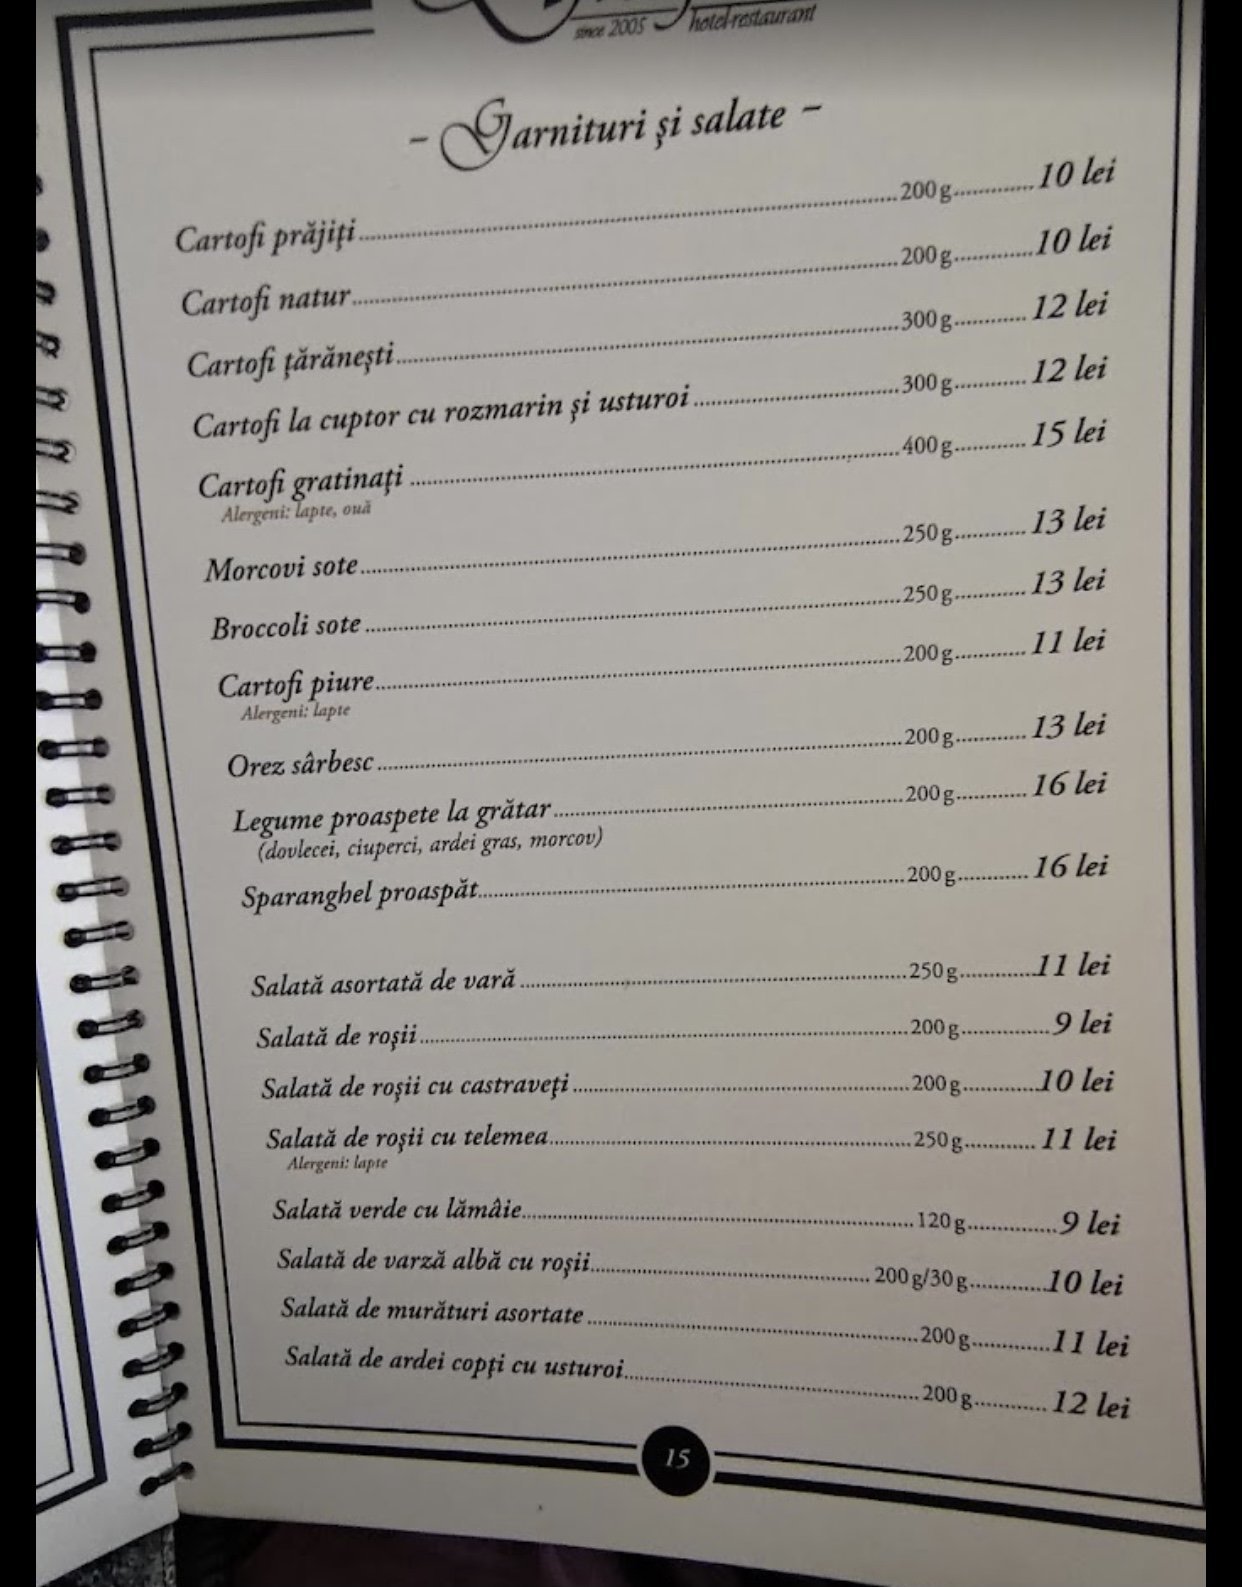 since 2005 hotel-restaurant
- Garnituri și salate -
Cartofi prăjiți 200 g 10 lei
Cartofi natur 200 g 10 lei
Cartofi țărănești 300 g 12 lei
Cartofi la cuptor cu rozmarin și usturoi 300 g 12 lei
Cartofi gratinați 400 g 15 lei
Alergeni: lapte, ouă
Morcovi sote 250 g 13 lei
Broccoli sote 250 g 13 lei
Cartofi piure 200 g 11 lei
Alergeni: lapte
Orez sârbesc 200 g 13 lei
Legume proaspete la grătar 200 g 16 lei
(dovlecei, ciuperci, ardei gras, morcov)
Sparanghel proaspăt 200 g 16 lei
Salată asortată de vară 250 g 11 lei
Salată de roșii 200 g 9 lei
Salată de roșii cu castraveți 200 g 10 lei
Salată de roșii cu telemea 250 g 11 lei
Alergeni: lapte
Salată verde cu lămâie 120 g 9 lei
Salată de varză albă cu roșii 200 g/30 g 10 lei
Salată de murături asortate 200 g 11 lei
Salată de ardei copți cu usturoi 200 g 12 lei
15